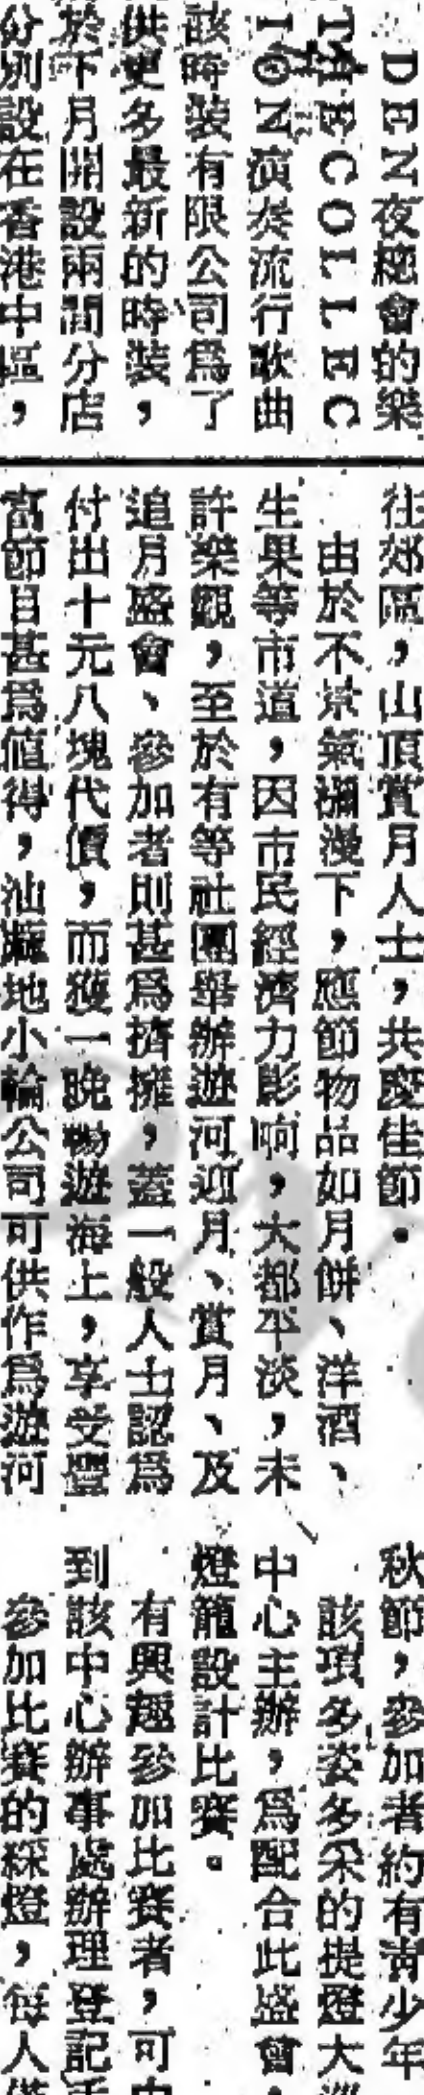 DEN夜總會的樂
THE COLLEC
ION演奏流行歌曲
該時裝有限公司爲了
供更多最新的時裝，
於下月開設兩間分店
分別設在香港中區，
往郊區，山頂賞月人士，共慶佳節。
由於不景氣瀰漫下，應節物品如月餅、洋酒、
生果等市道，因市民經濟力影响，大都平淡，未
許樂觀，至於有等社團舉辦遊河迎月、賞月、及
追月盛會、參加者則甚爲擠擁，蓋一般人士認爲
付出十元八塊代價，而獲一晚暢遊海上，享受豐
富節目甚爲値得，油蔴地小輪公司可供作爲遊河
秋節，參加者約有靑少年
該項多姿多采的提燈大
中心主辦，爲配合此盛會，
燈籠設計比賽。
有興趣參加比賽者，可
到該中心辦事處辦理登記手
參加比賽的綵燈，每人